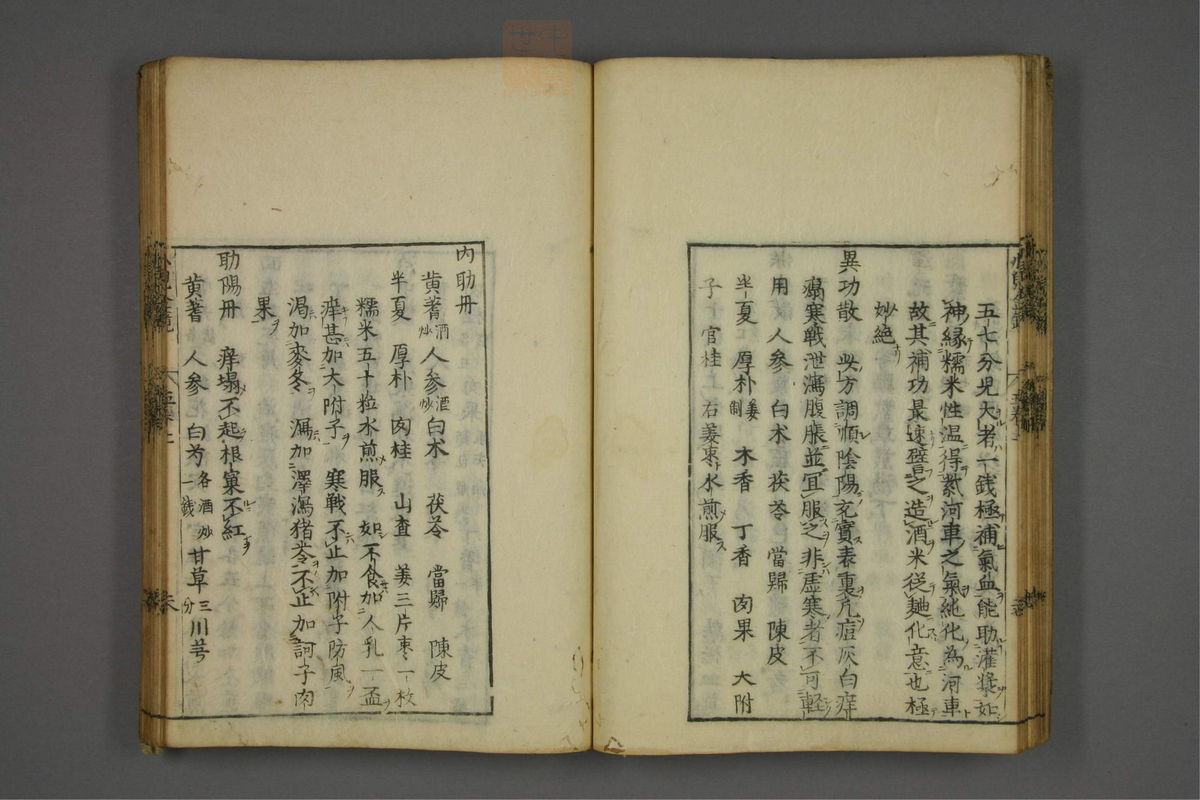 五七分児大者一銭極補氣血能助灌漿如
神縁糯米性温得紫河車之氣純化為河車
故其補功最速譬之造酒米從麯化意也極
妙絶
異功散 此方調順陰陽充實表裏凡痘灰白痒
塌寒戦泄瀉腹脹並宜服之非虚寒者不可軽
用 人参 白朮 茯苓 當歸 陳皮
半夏 厚朴姜制 木香 丁香 肉果 大附
子 官桂 右姜棗水煎服
內助丹
黄蓍酒炒 人参酒炒 白朮 茯苓 當歸 陳皮
半夏 厚朴 肉桂 山査 姜三片棗一枚
糯米五十粒水煎服 如不食加人乳一盃
痒甚加大附子 寒戦不止加附子防風
渇加麥冬 瀉加澤瀉猪苓不止加訶子肉
果
助陽丹 痒塌不起根窠不紅
黄蓍 人参 白芍各酒炒一銭 甘草三分 川芎